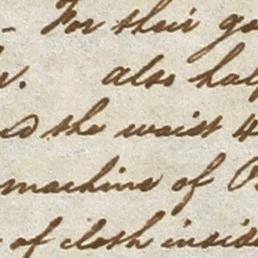 - For their go
also half
the waist 4
machine of
of cloth inside